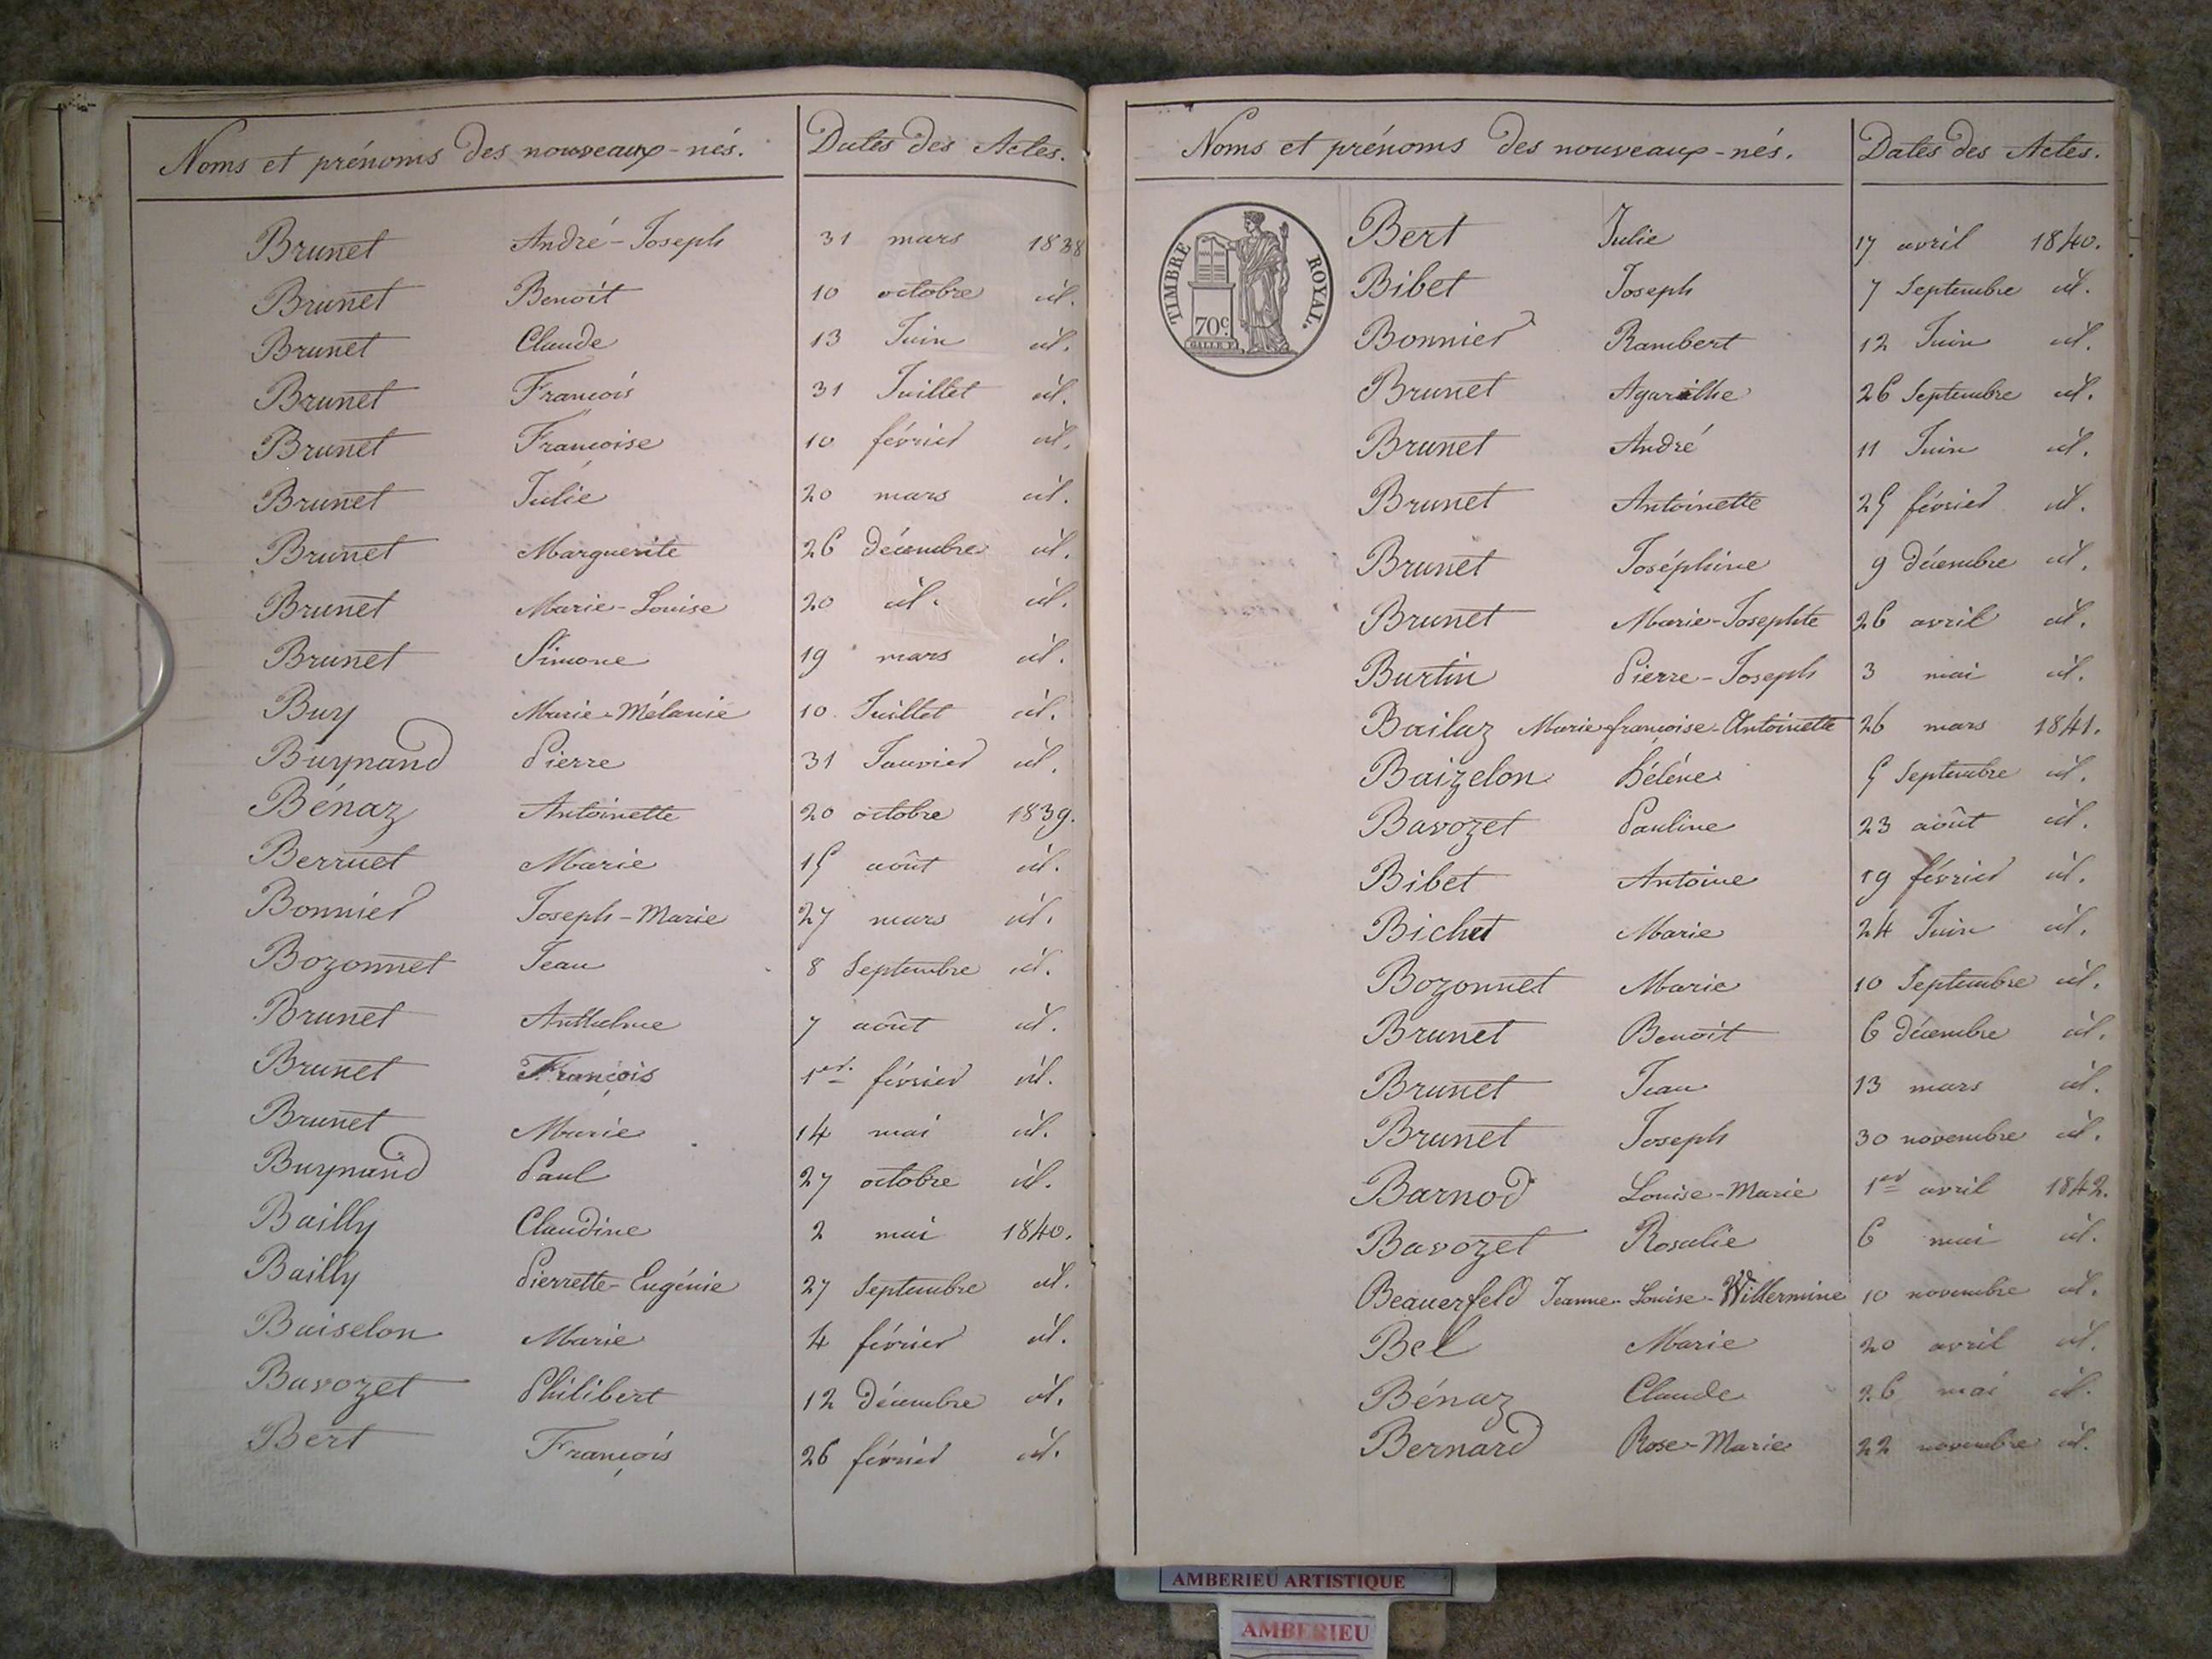 Noms et prénoms des nouveaux-nés. Dates des Actes.
Brunet André-Joseph 31 mars 1838
Brunet Benoit 10 octobre id.
Brunet Claude 13 Juin id.
Brunet François 31 Juillet id.
Brunet Françoise 10 février id.
Brunet Julie 20 mars id.
Brunet Marguerite 26 décembre id.
Brunet Marie-Louise 20 id. id.
Brunet Simone 19 mars id.
Buy Marie-Mélanie 10 Juillet id.
Buynand Pierre 31 Janvier id.
Bénaz Antoinette 20 octobre 1839.
Berruet Marie 15 août id.
Bonnier Joseph-Marie 27 mars id.
Bozonnet Jean 8 Septembre id.
Brunet Anthelme 7 août id.
Brunet François 1er. février id.
Brunet Marie 14 mai id.
Buynand Paul 27 octobre id.
Bailly Claudine 2 mai 1840.
Bailly Pierrette-Eugénie 27 Septembre id.
Baiselon Marie 4 février id.
Bavozet Philibert 12 décembre id.
Bert François 26 février id.
Noms et prénoms des nouveaux-nés. Dates des Actes.
TIMBRE ROYAL.
70c.
Bert Julie 17 avril 1840.
Bibet Joseph 7 Septembre id.
Bonnier Rambert 12 Juin id.
Brunet 26 Septembre id.
Brunet André 11 Juin id.
Brunet Antoinette 25 février id.
Brunet Joséphine 9 décembre id.
Brunet Marie-Josephte 26 avril id.
Burtin Pierre-Joseph 3 mai id.
Bailaz Marie françoise-Antoinette 26 mars 1841.
Baizelon hélène 5 Septembre id.
Bavozet Pauline 23 août id.
Bibet Antoine 19 février id.
Bichet Marie 24 Juin id.
Bozonnet Marie 10 Septembre id.
Brunet Benoit 6 décembre id.
Brunet Jean 13 mars id.
Brunet Joseph 30 novembre id.
Barnod Louise-Marie 1er avril 1842.
Bavozet Rosalie 6 mai id.
Beauerfeld Jeanne-Louise-Willermine 10 novembre id.
Bel Marie 20 avril id.
Bénaz Claude 26 mai id.
Bernard Rose-Marie 22 novembre id.
AMBERIEU ARTISTIQUE
AMBERIEU